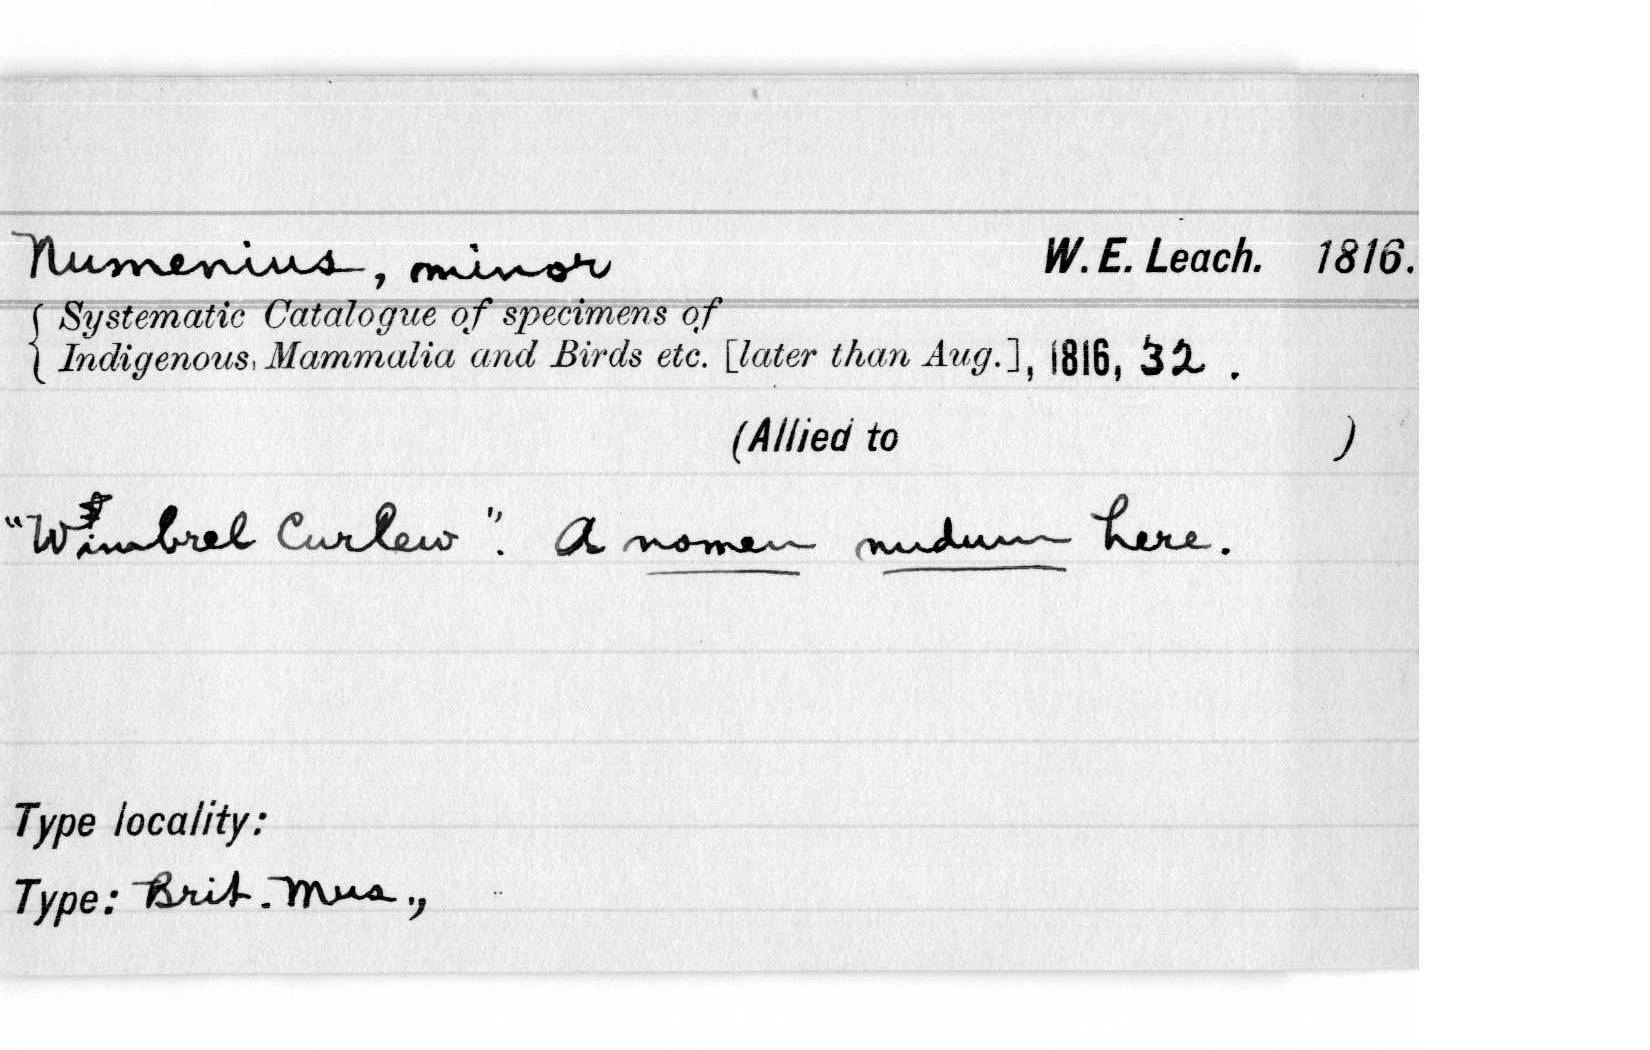 Numenius, minor W. E. Leach. 1816.
{ Systematic Catalogue of specimens of
Indigenous, Mammalia and Birds etc. [later than Aug.], 1816, 32.
(Allied to )
"Wimbrel Curlew". A nomen nudum here.
Type locality:
Type: Brit. Mus.,